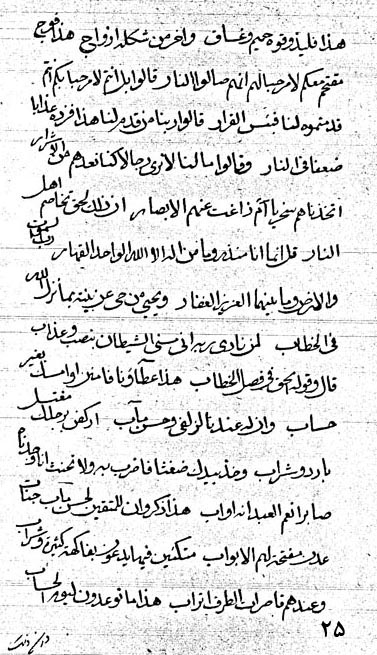 هذا فليذوقوه حميم وغساق وآخر من شكله ازواج هذا فوج
مقتحم معكم لا مرحبا بهم انهم صالوا النار قالوا بل انتم لا مرحبا بكم انتم
قدمتموه لنا فبئس القرار قالوا ربنا من قدم لنا هذا فزده عذابا
ضعفا فى النار وقالوا مالنا لا نرى رجالا كنا نعدهم من الاشرار
اتخذناهم سخريا ام زاغت عنهم الابصار ان ذلك لحق تخاصم اهل
النار قل انما انا منذر وما من اله الا الله الواحد القهار رب السموات
والارض وما بينهما العزيز الغفار ويحيى من حى عن بينة بما نزل الله
فى الخطاب نادى ربه انى مسنى الشيطان بنصب وعذاب
قال وقوله الحق فى فصل الخطاب هذا عطاؤنا فامنن او امسك بغير
حساب وان له عندنا لزلفى وحسن مآب اركض برجلك مغتسل
بارد وشراب وخذ بيدك ضغثا فاضرب به ولا تحنث انا وجدناه
صابرا نعم العبد انه اواب هذا ذكر وان للمتقين لحسن مآب جنات
عدن مفتحة لهم الابواب متكئين فيها يدعون بفاكهة كثيرة وشراب
وعندهم قاصرات الطرف اتراب هذا ما توعدون ليوم الحساب
٢٥